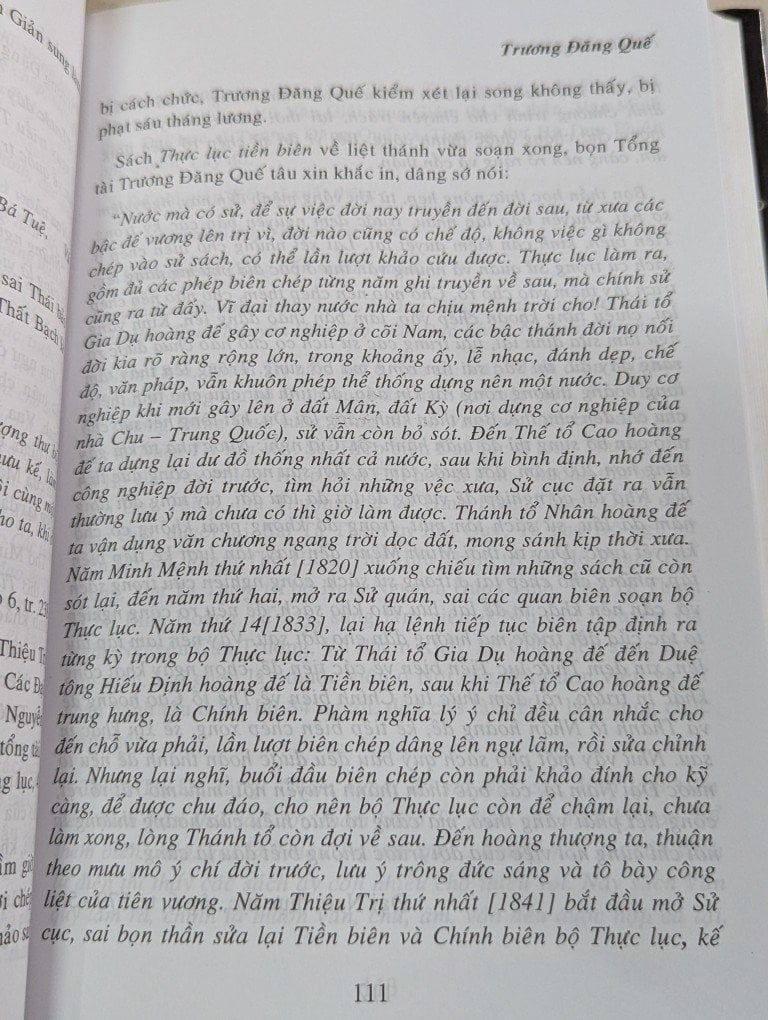 Trương Đăng Quế
bị cách chức, Trương Đăng Quế kiểm xét lại song không thấy, bị
phạt sáu tháng lương.
Sách Thực lục tiền biên về liệt thánh vừa soạn xong, bọn Tổng
tài Trương Đăng Quế tâu xin khắc in, dâng sớ nói:
“Nước mà có sử, để sự việc đời nay truyền đến đời sau, từ xưa các
bậc đế vương lên trị vì, đời nào cũng có chế độ, không việc gì không
chép vào sử sách, có thể lần lượt khảo cứu được. Thực lục làm ra,
gồm đủ các phép biên chép từng năm ghi truyền về sau, mà chính sử
cũng ra từ đấy. Vĩ đại thay nước nhà ta chịu mệnh trời cho! Thái tổ
Gia Dụ hoàng đế gây cơ nghiệp ở cõi Nam, các bậc thánh đời nọ nối
đời kia rõ ràng rộng lớn, trong khoảng ấy, lễ nhạc, đánh dẹp, chế
độ, văn pháp, vẫn khuôn phép thể thống dựng nên một nước. Duy cơ
nghiệp khi mới gây lên ở đất Mân, đất Kỳ (nơi dựng cơ nghiệp của
nhà Chu – Trung Quốc), sử vẫn còn bỏ sót. Đến Thế tổ Cao hoàng
đế ta dựng lại dư đồ thống nhất cả nước, sau khi bình định, nhớ đến
công nghiệp đời trước, tìm hỏi những vệc xưa, Sử cục đặt ra vẫn
thường lưu ý mà chưa có thì giờ làm được. Thánh tổ Nhân hoàng đế
ta vận dụng văn chương ngang trời dọc đất, mong sánh kịp thời xưa.
Năm Minh Mệnh thứ nhất [1820] xuống chiếu tìm những sách cũ còn
sót lại, đến năm thứ hai, mở ra Sử quán, sai các quan biên soạn bộ
Thực lục. Năm thứ 14[1833], lại hạ lệnh tiếp tục biên tập định ra
từng kỳ trong bộ Thực lục: Từ Thái tổ Gia Dụ hoàng đế đến Duệ
tông Hiếu Định hoàng đế là Tiền biên, sau khi Thế tổ Cao hoàng đế
trung hưng, là Chính biên. Phàm nghĩa lý ý chỉ đều cân nhắc cho
đến chỗ vừa phải, lần lượt biên chép dâng lên ngự lãm, rồi sửa chỉnh
lại. Nhưng lại nghĩ, buổi đầu biên chép còn phải khảo đính cho kỹ
càng, để được chu đáo, cho nên bộ Thực lục còn để chậm lại, chưa
làm xong, lòng Thánh tổ còn đợi về sau. Đến hoàng thượng ta, thuận
theo mưu mô ý chí đời trước, lưu ý trông đức sáng và tô bày công
liệt của tiên vương. Năm Thiệu Trị thứ nhất [1841] bắt đầu mở Sử
cục, sai bọn thần sửa lại Tiền biên và Chính biên bộ Thực lục, kế
111